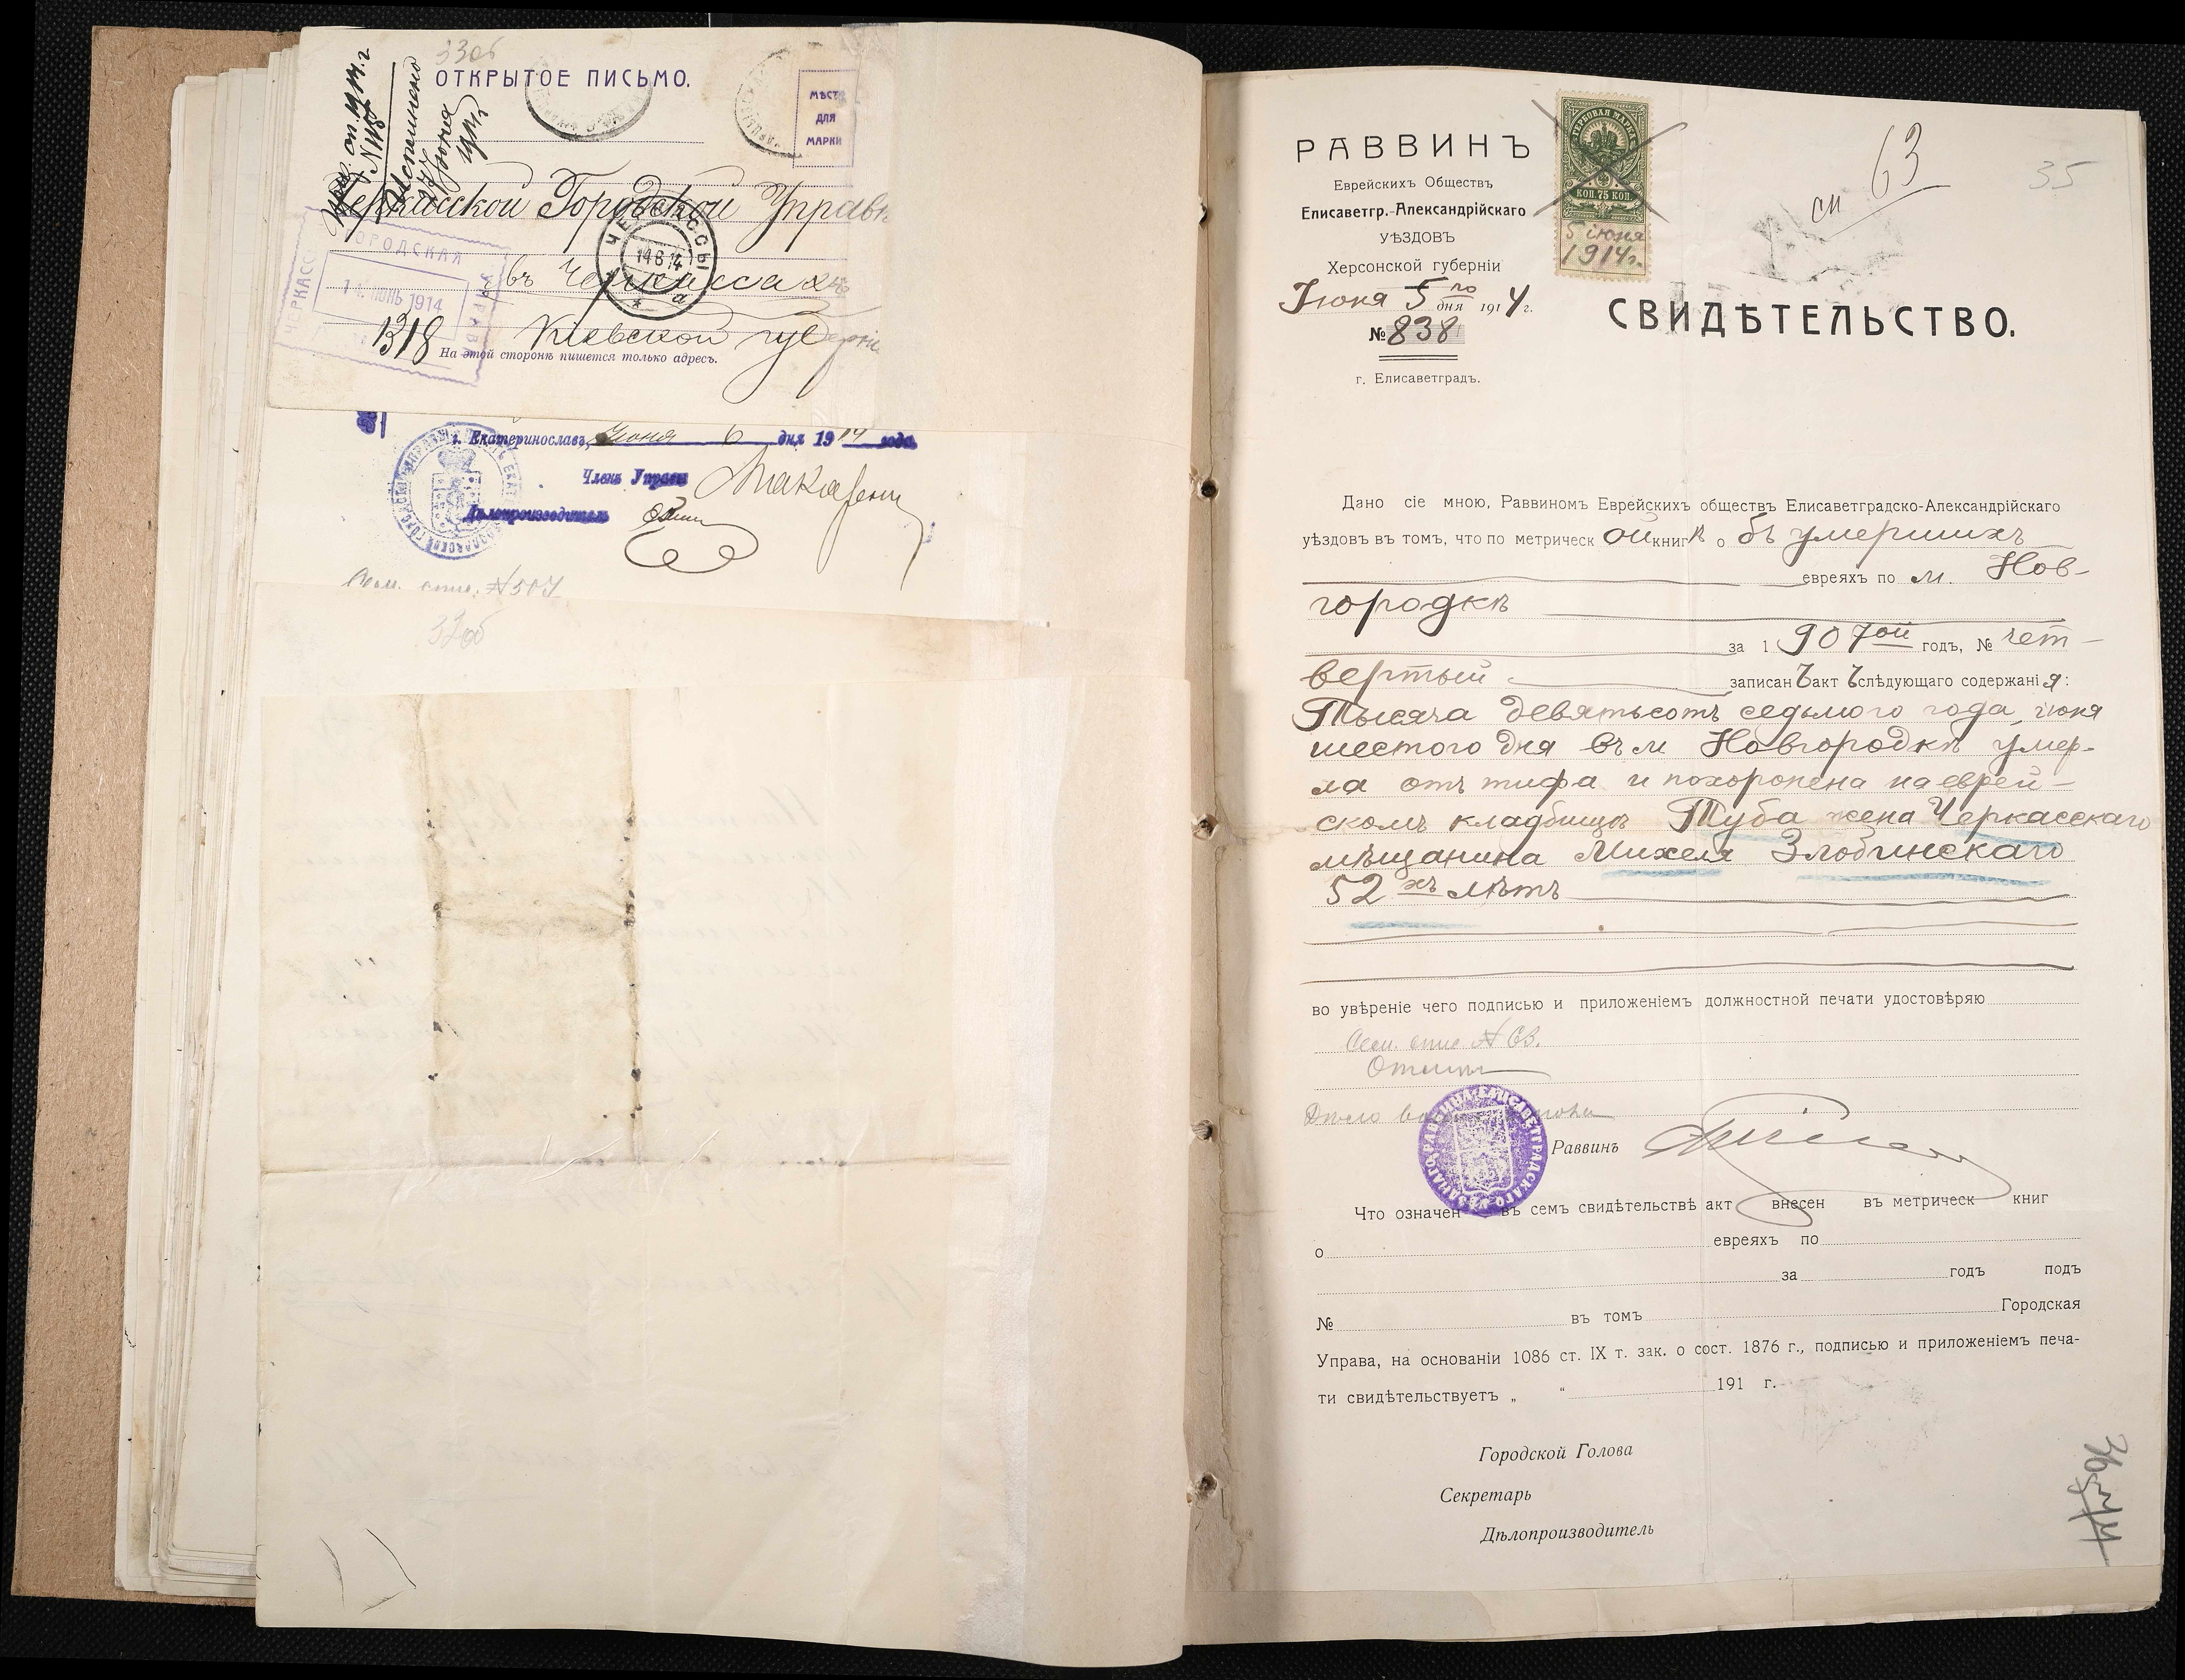 33об
ОТКРЫТОЕ ПИСЬМО.
МѢСТО
ДЛЯ
МАРКИ
Исполнено
17 Іюня
Черкасской Городской Управѣ
въ Черкассахъ
Кіевской губерніи
1318
На этой сторонѣ пишется только адресъ.
ЧЕРКАССЫ
14 6 14
ЧЕРКАССКАЯ ГОРОДСКАЯ УПРАВА
14 ІЮНЬ 1914
г. Екатеринославъ, Іюня 6 дня 1914 года
Членъ Управы
Дѣлопроизводитель
Сем. спис. № 507
32об
РАВВИНЪ
Еврейскихъ Обществъ
Елисаветгр.-Александрійскаго
УѢЗДОВЪ
Херсонской губерніи
Іюня 5го дня 1914 г.
№ 838
г. Елисаветградъ.
ГЕРБОВАЯ МАРКА
КОП. 75 КОП.
5 іюня
1914г.
сп 63
35
СВИДѢТЕЛЬСТВО.
Дано сіе мною, Раввиномъ Еврейскихъ обществъ Елисаветградско-Александрійскаго
уѣздовъ въ томъ, что по метрической книгѣ объ умершихъ
евреяхъ по м. Нов-
городкѣ
за 1907ой годъ, № чет-
вертый записанъ актъ слѣдующаго содержанія:
Тысяча девятьсотъ седьмого года, іюня
шестого дня въ м Новгородкѣ умер-
ла отъ тифа и похоронена на еврей-
скомъ кладбищѣ Туба жена Черкасскаго
мѣщанина Михеля Злобинскаго
52хъ лѣтъ
во увѣреніе чего подписью и приложеніемъ должностной печати удостовѣряю
Сем. спис № 63.
Дѣло
Раввинъ
Что означен въ семъ свидѣтельствѣ акт внесен въ метрическ книг
о евреяхъ по
за годъ подъ
№ въ томъ Городская
Управа, на основаніи 1086 ст. IX т. зак. о сост. 1876 г., подписью и приложеніемъ печа-
ти свидѣтельствуетъ „ “ 191 г.
Городской Голова
Секретарь
Дѣлопроизводитель